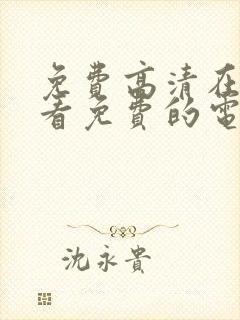 免費高清在
看免費的電
沈永貴